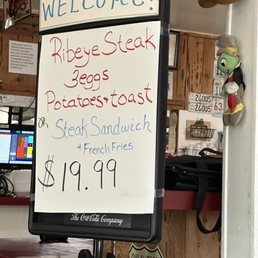 WELCOME!
Ribeye Steak
3 eggs
Potatoes + toast
OR
Steak Sandwich
+ French Fries
$19.99
The Coca-Cola Company